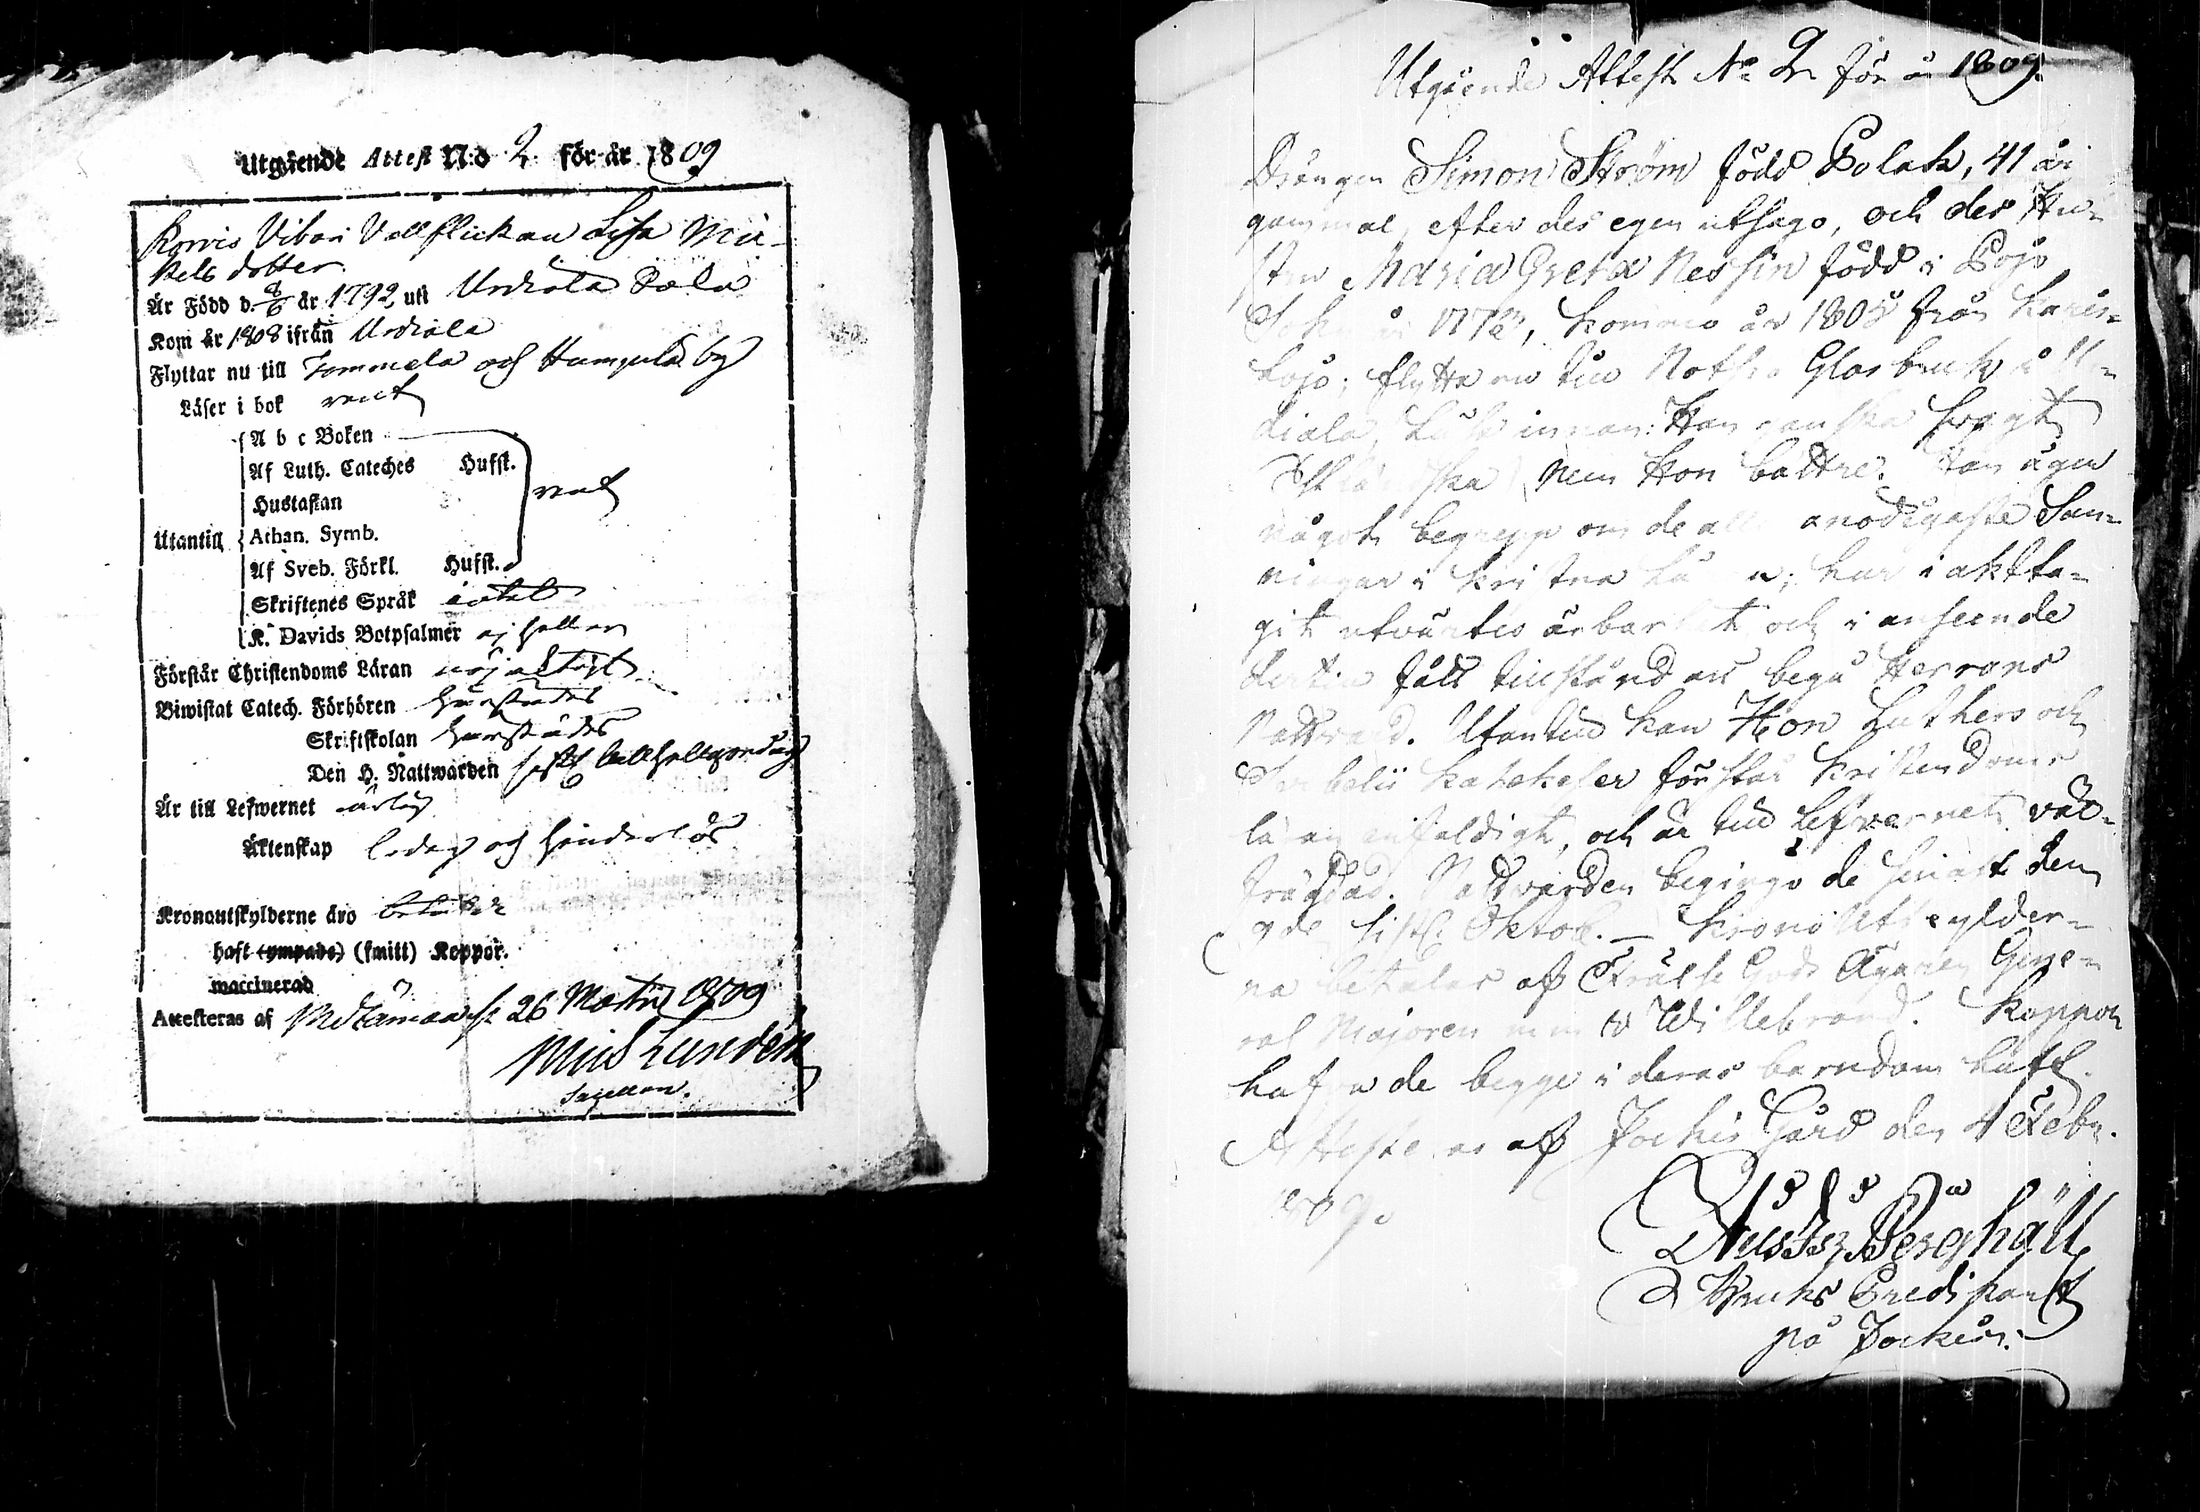 Utgående Attest N:o 2 för år 1809
Korvis Vibari Vallflickan Lisa Mi-
kels dotter
Är Född d. 8/6 år 1792 uti Urdiala Sokn
Kom år 1808 ifrån Urdiala
Flyttar nu till Tammela och Humpila by
Läser i bok rent
A b c Boken
Af Luth. Cateches Hufst.
Hustaflan rent
Utantill Athan. Symb.
Af Sveb. Förkl. Hufst.
Skriftenes Språk intet
K. Davids Botpsalmer ej heller
Förstår Christendoms Läran nöjaktigt
Biwistat Catech. Förhören härstädes
Skriftskolan härstädes
Den H. Nattwarden sistl. Allhelgondag
Är till Lefwernet ärlig
Äktenskap ledig och hinderlös
Kronoutskylderne äro betalde
haft (ympade) (smitt) Koppor.
vaccinerad
Attesteras af 26 Martii 1809
Lundén
Sacellan.
Utgående Attest No 2 för år 1809.
Drängen Simon Ström född Polak, 41 år
gammal, efter des egen utsago, och des Hu-
stru Maria Greta Nessin född i Pojo
Sokn år 1772, komne år 1805 från Karis-
Lojo; flytta nu till Notsjö Glasbruk i Ur-
diala. Läser innan: Han ganska svagt
men Hon bättre. Han äger
något begrepp om de alla nödigaste San-
ningar i kristna Läran; har iaktta-
git utvärtes ärbarhet och i anseende
dertill fått tillstånd att begå Herrans
Nattvard. Utantill kan Hon Luthers och
Svebelii katekeser förstår kristendoms
läran enfaldigt, och är till Lefvernet väl-
frägdad. Nattvarden begingo de senast den
9de sistl. Oktob. — Krono Utskylder-
na betalas af Frälse Gods Ägaren Gene-
ral Majoren m m v Willebrand. Koppor
hafva de begge i deras barndom haft.
Attesteras af Jockis Gård den 4 Febr.
1809.
Berghäll
Bruks Predikant
på Jockis.